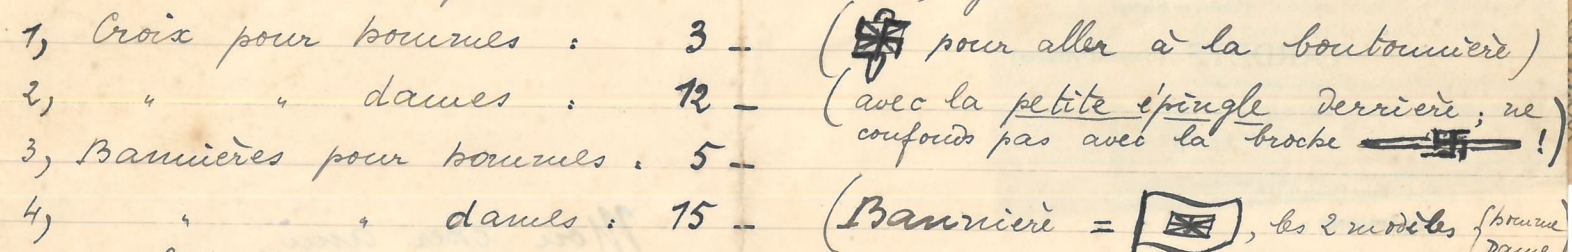 1, Croix pour hommes : 3 – ( pour aller à la boutonnière)
2, " " dames : 12 – (avec la petite épingle derrière ; ne
confonds pas avec la broche !)
3, Bannières pour hommes : 5 –
4, " " dames : 15 – (Bannière = , les 2 modèles (homme
Dame